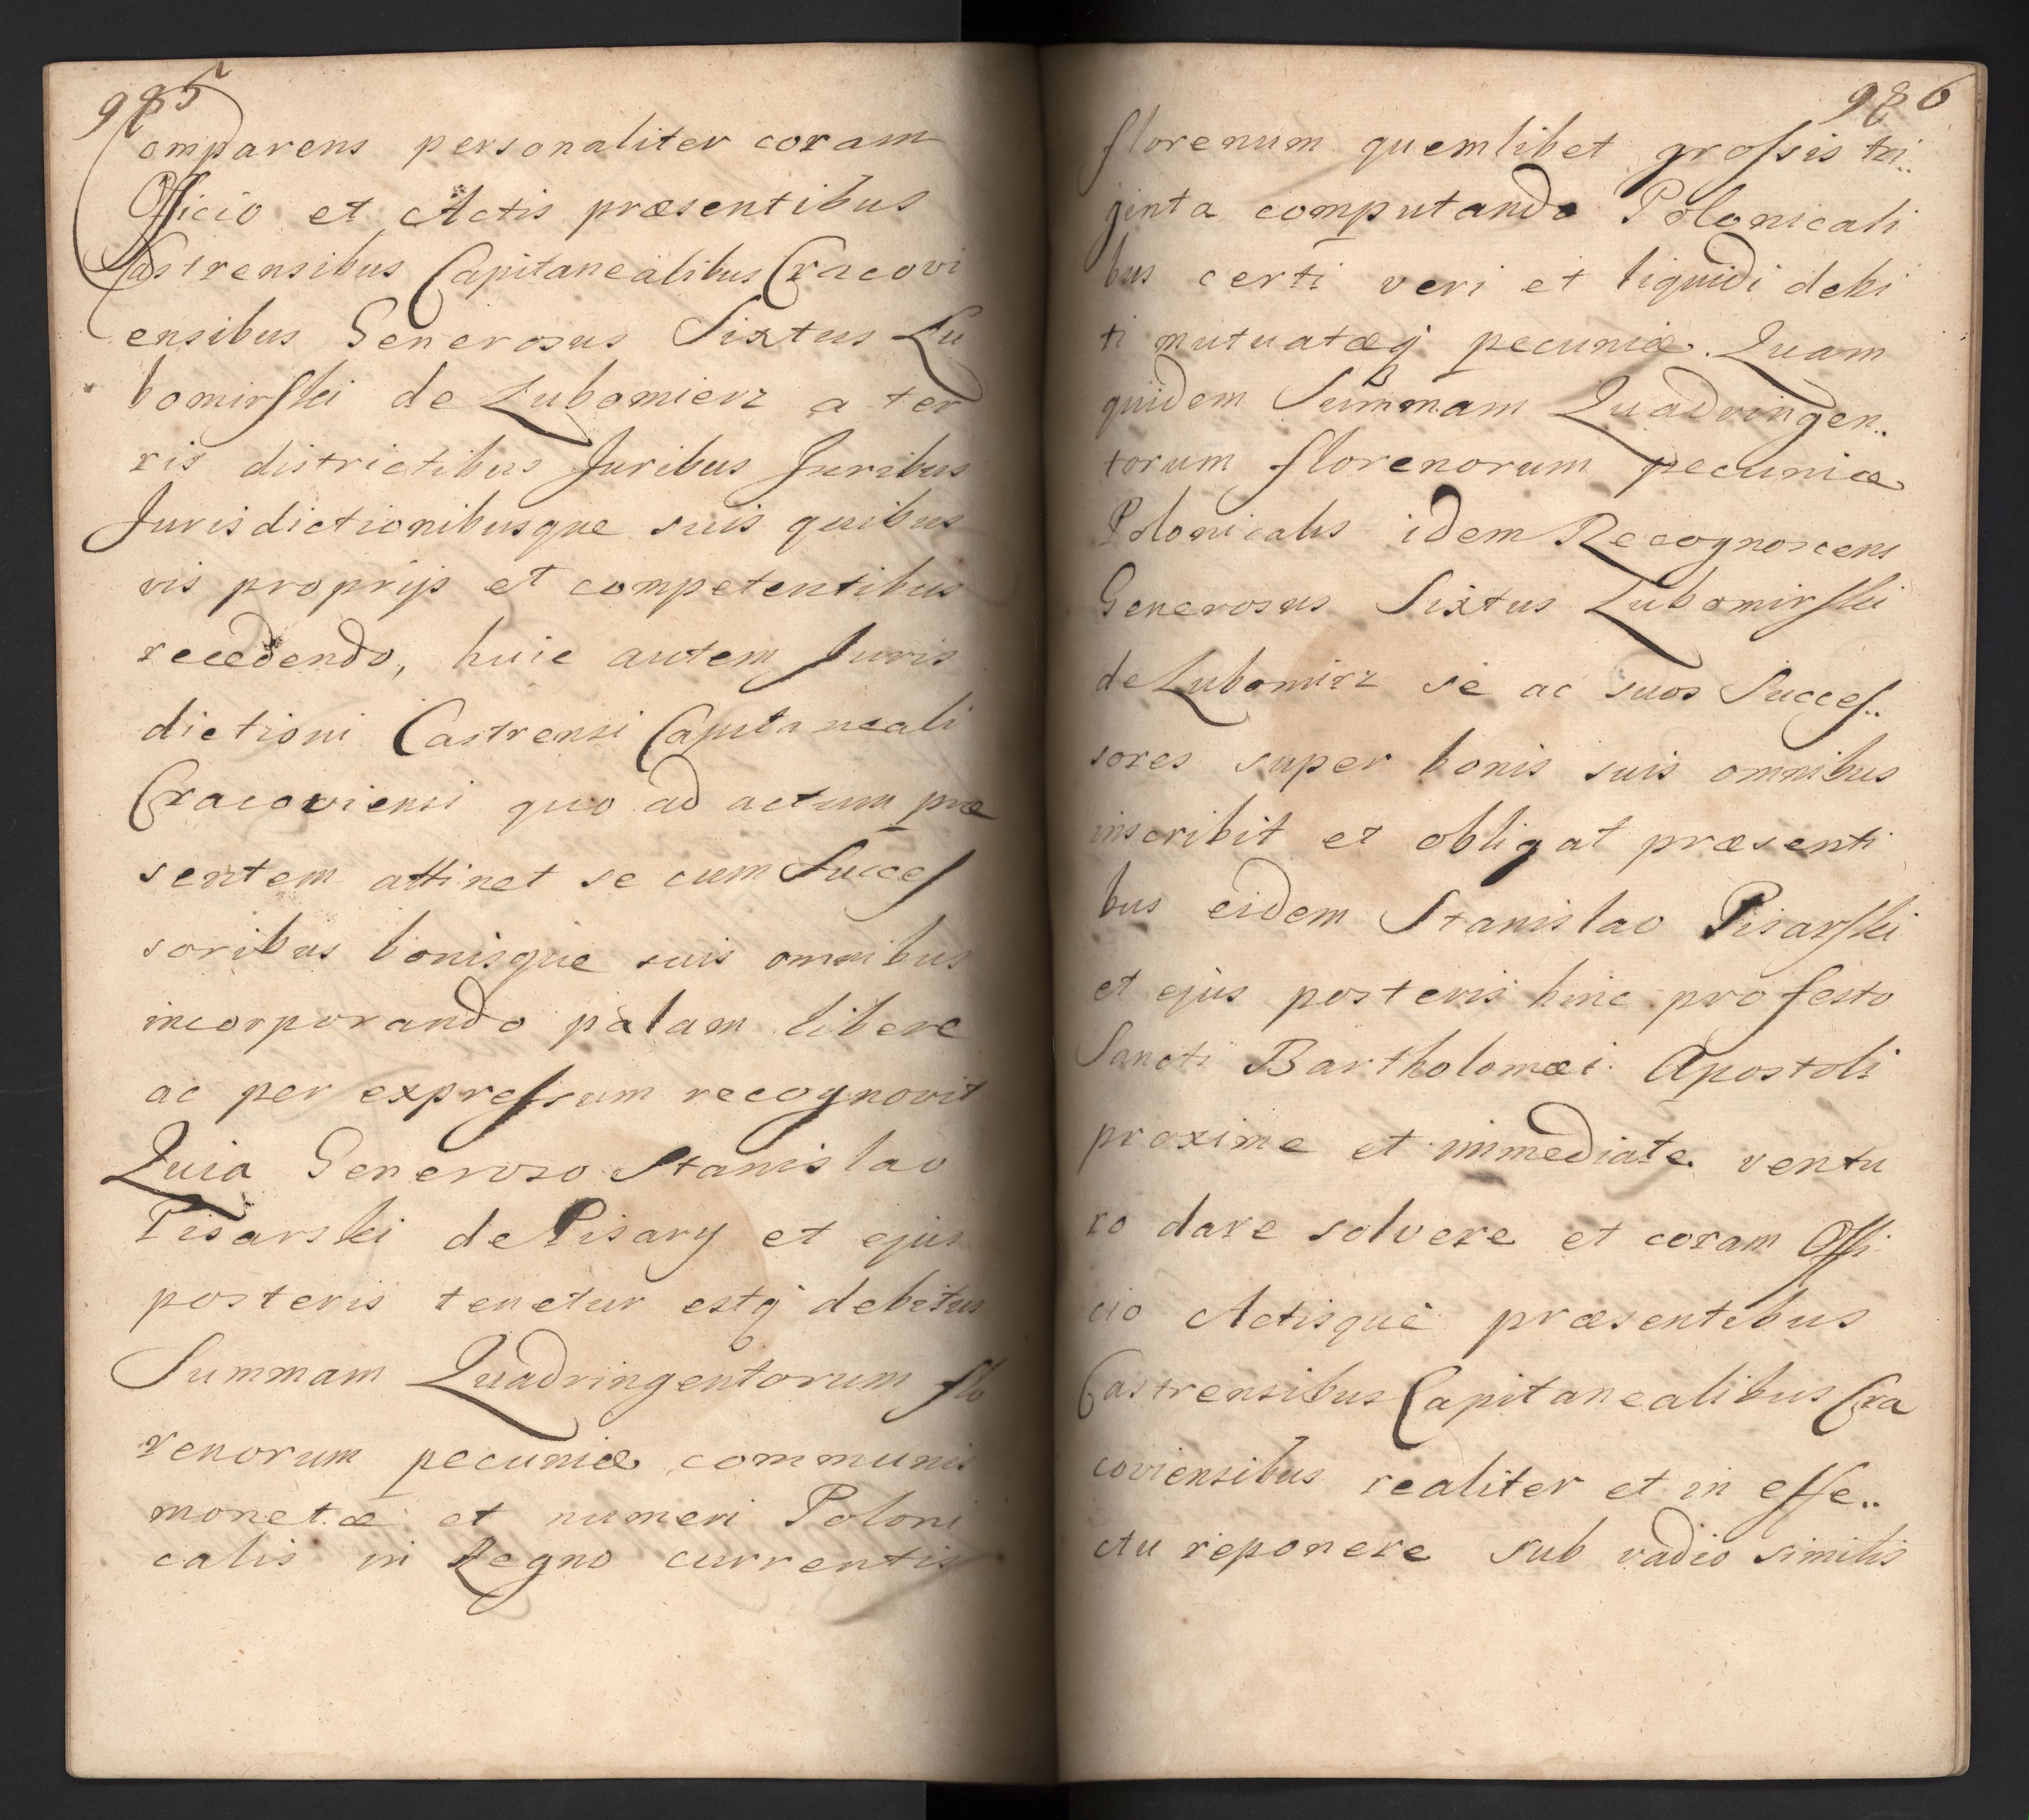 985
Comparens personaliter coram
Officio et Actis præsentibus
Castrensibus Capitanealibus Cracovi
ensibus Generosus Sixtus Lu
bomirski de Lubomierz a ter
ris districtibus Juribus Juribus
Jurisdictionibusque suis quibus
vis proprijs et competentibus
recedendo, huic autem Juris
dictioni Castrensi Capitaneali
Cracoviensi quo ad actum præ
sentem attinet se cum Succes
soribus bonisque suis omnibus
incorporando palam libere
ac per expressum recognovit
Quia Generoso Stanislao
Pisarski de Pisary et ejus
posteris tenetur estq debitus
Summam Quadringentorum flo
renorum pecuniæ communis
monetæ et numeri Poloni
calis in Regno currentis
986
florenum quemlibet grossis tri..
ginta computando Polonicali
bus certi veri et liquidi debi
ti mutuatæq pecuniæ. Quam
quidem Summam Quadringen..
torum florenorum pecuniæ
Polonicalis idem Recognoscens
Generosus Sixtus Lubomirski
de Lubomirz se ac suos Succes..
sores super bonis suis omnibus
inscribit et obligat præsenti
bus eidem Stanislao Pisarski
et ejus posteris hinc pro festo
Sancti Bartholomæi Apostoli
proxime et immediate ventu
ro dare solvere et coram Offi
cio Actisque præsentibus
Castrensibus Capitanealibus Cra
coviensibus realiter et in effe..
ctu reponere sub vadio similis